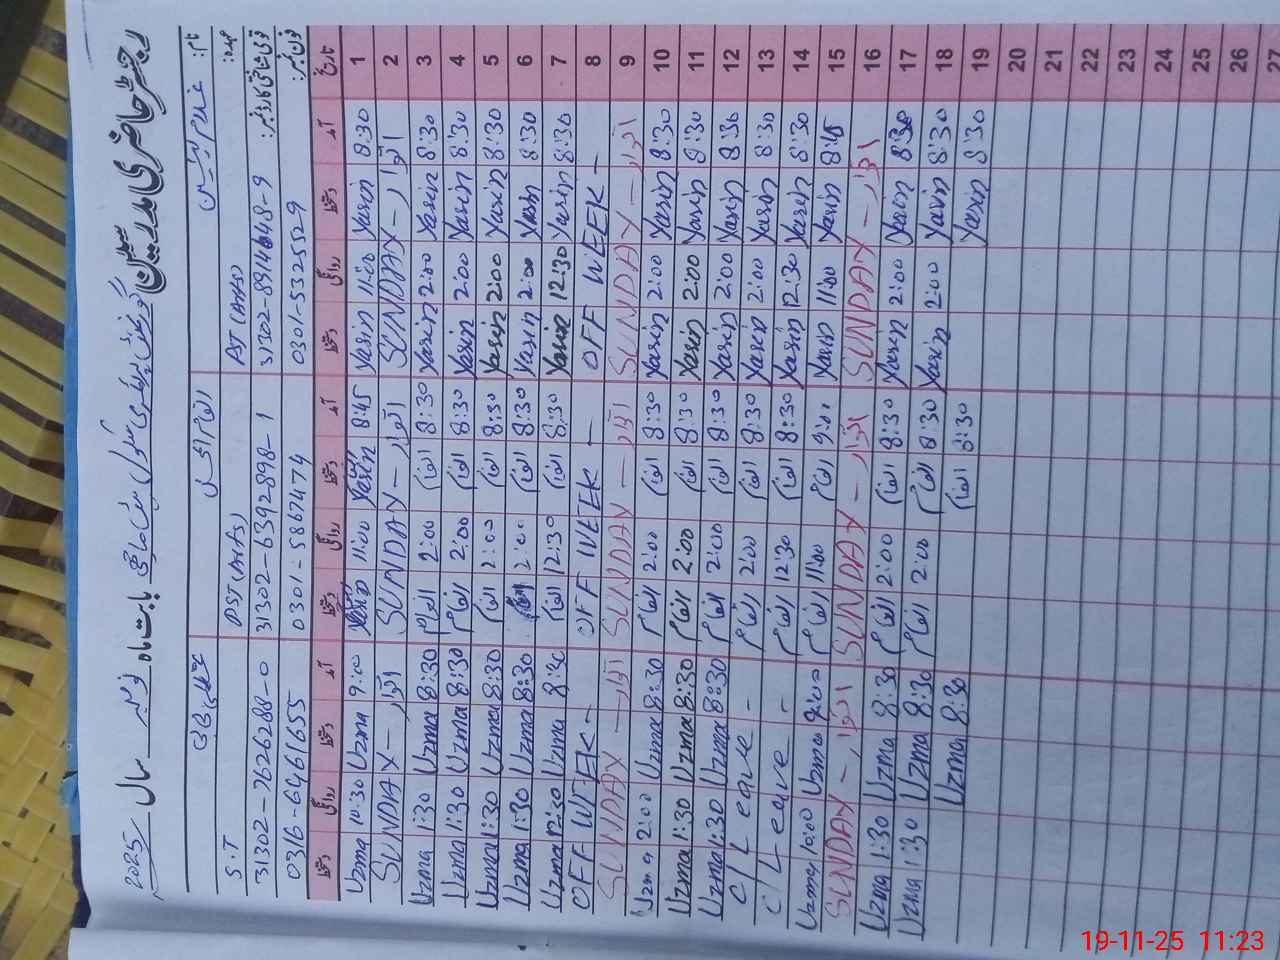 رجسٹر حاضری مدرسین گورنمنٹ پرائمری سکول بابت ماہ نومبر سال 2025
نام:
عہدہ: AT (AHS) PST (AHS) S.T
قومی شناختی کارڈ نمبر: 31302-8914648-9 31302-6392898-1 31302-7626288-0
فون نمبر: 0301-5325529 0301-5867474 0316-6461655
تاریخ آمد دستخط روانگی دستخط آمد دستخط روانگی دستخط آمد دستخط روانگی دستخط
1 8:30 Yasin 11:00 Yasin 8:45 11:00 9:00 Uzma 10:30 Uzma
2 اتوار - SUNDAY اتوار - SUNDAY اتوار - SUNDAY
3 8:30 Yasin 2:00 Yasin 8:30 2:00 8:30 Uzma 1:30 Uzma
4 8:30 Yasin 2:00 Yasin 8:30 2:00 8:30 Uzma 1:30 Uzma
5 8:30 Yasin 2:00 Yasin 8:30 2:00 8:30 Uzma 1:30 Uzma
6 8:30 Yasin 2:00 Yasin 8:30 2:00 8:30 Uzma 1:30 Uzma
7 8:30 Yasin 12:30 Yasin 8:30 12:30 8:30 Uzma 12:30 Uzma
8 OFF WEEK - OFF WEEK - OFF WEEK -
9 اتوار - SUNDAY اتوار - SUNDAY اتوار - SUNDAY
10 8:30 Yasin 2:00 Yasin 8:30 2:00 8:30 Uzma 2:00 Uzma
11 8:30 Yasin 2:00 Yasin 8:30 2:00 8:30 Uzma 1:30 Uzma
12 8:30 Yasin 2:00 Yasin 8:30 2:00 8:30 Uzma 1:30 Uzma
13 8:30 Yasin 2:00 Yasin 8:30 2:00 C/L eave -
14 8:30 Yasin 12:30 Yasin 8:30 12:30 C/L eave -
15 8:45 Yasin 11:00 Yasin 9:00 11:00 9:00 Uzma 10:00 Uzma
16 اتوار - SUNDAY اتوار - SUNDAY اتوار - SUNDAY
17 8:30 Yasin 2:00 Yasin 8:30 2:00 8:30 Uzma 1:30 Uzma
18 8:30 Yasin 2:00 Yasin 8:30 2:00 8:30 Uzma 1:30 Uzma
19 8:30 Yasin 8:30 8:30 Uzma
20
21
22
23
24
25
26
27
19-11-25 11:23